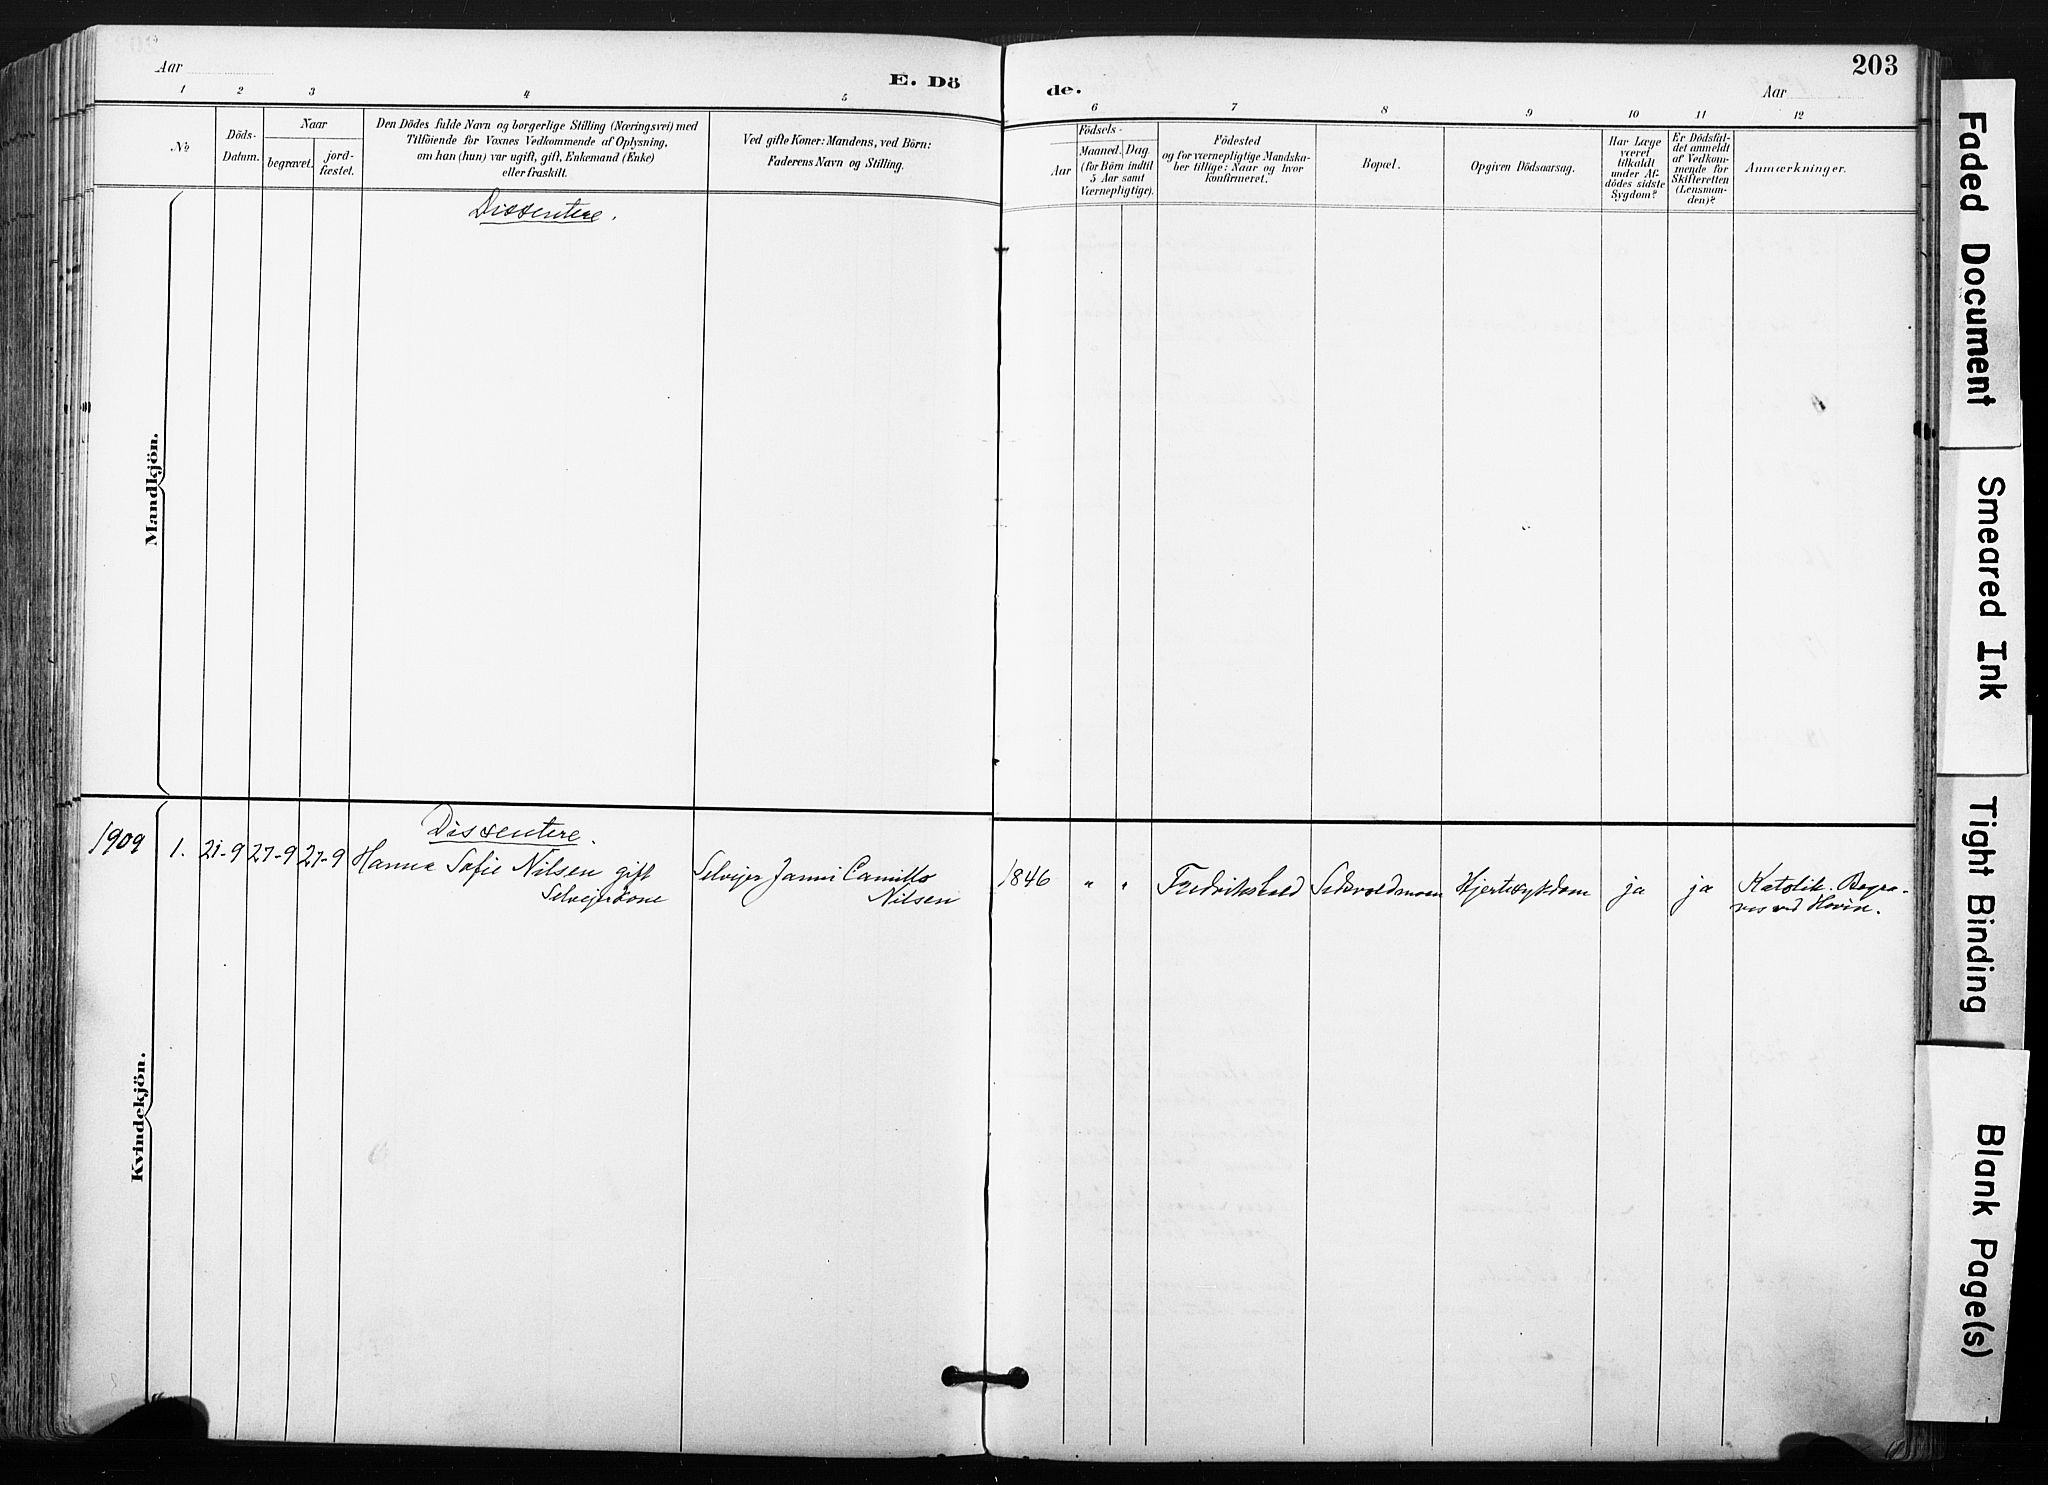 Aar
E. Dö
1
2
3
4
5
No
Döds-
Datum.
Naar
begravet.
jord-
fæstet.
Den Dödes fulde Navn og borgerlige Stilling (Næringsvei) med
Tilföiende for Voxnes Vedkommende af Oplysning,
om han (hun) var ugift, gift, Enkemand (Enke)
eller fraskilt.
Ved gifte Koner: Mandens, ved Börn:
Faderens Navn og Stilling.
Dissentere.
Mandkjön.
1909
1.
21-9
27-9
27-9
Dissentere.
Hanna Sofie Nilsen gift
Selveierkone
Selveier Janni Camillo
Nilsen
Kvindekjön.
de.
Aar
203
6
7
8
9
10
11
12
Födsels-
Aar
Maaned.
Dag.
(for Börn indtil
5 Aar samt
Værnepligtige).
Födested
og for værnepligtige Mandska-
ber tillige: Naar og hvor
konfirmeret.
Bopæl.
Opgiven Dödsaarsag.
Har Læge
været
tilkaldt
under Af-
dödes sidste
Sygdom?
Er Dödsfal-
det anmeldt
af Vedkom-
mende for
Skifteretten
(Lensman-
den)?
Anmærkninger.
1846
"
"
Fredrikshald
Hjertesykdom
ja
ja
Katolik. Begra-
ves ved Hovin.
Faded Document
Smeared Ink
Tight Binding
Blank Page(s)